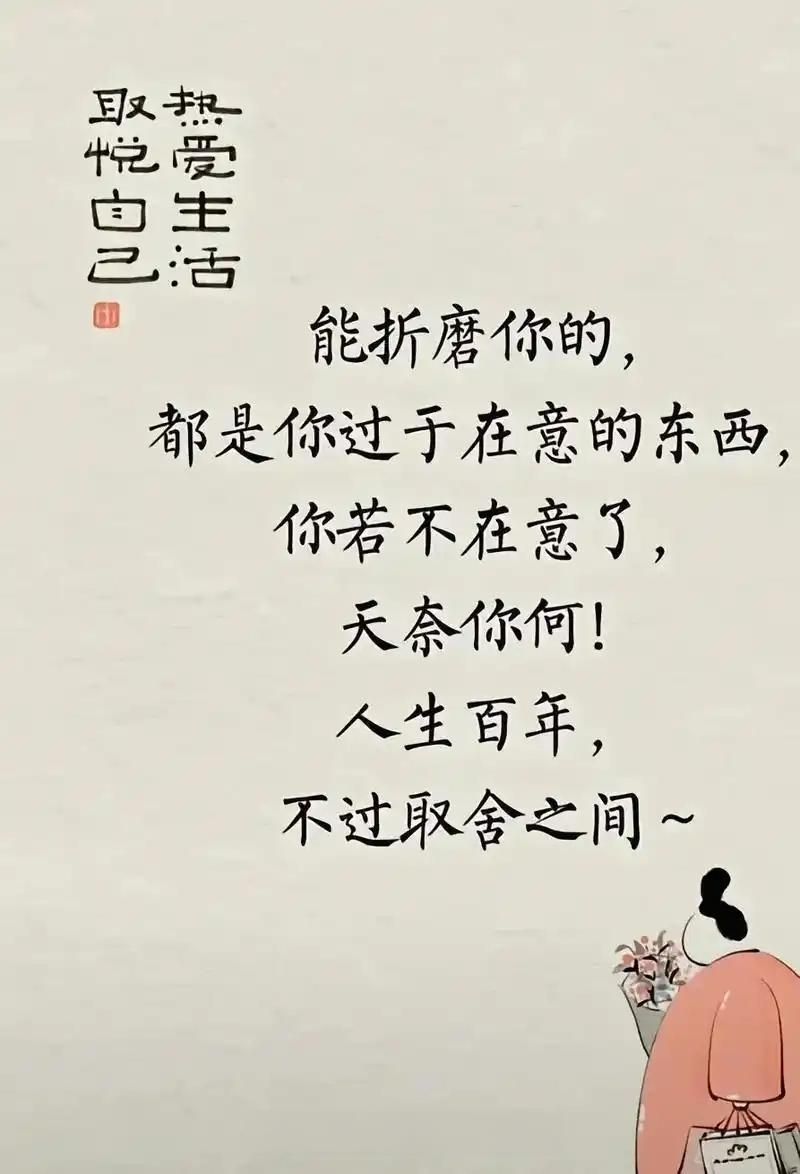 热爱生活
取悦自己
能折磨你的，
都是你过于在意的东西，
你若不在意了，
天奈你何！
人生百年，
不过取舍之间~